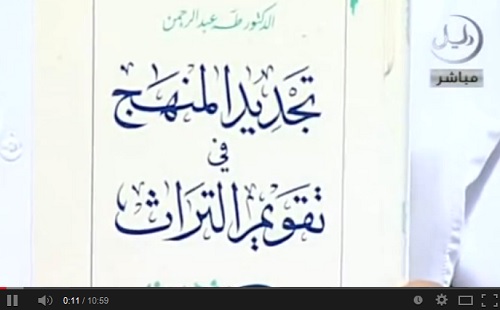 الدكتور طه عبد الرحمن
تجديد المنهج
في
تقويم التراث
دليل
مباشر
0:11 / 10:59